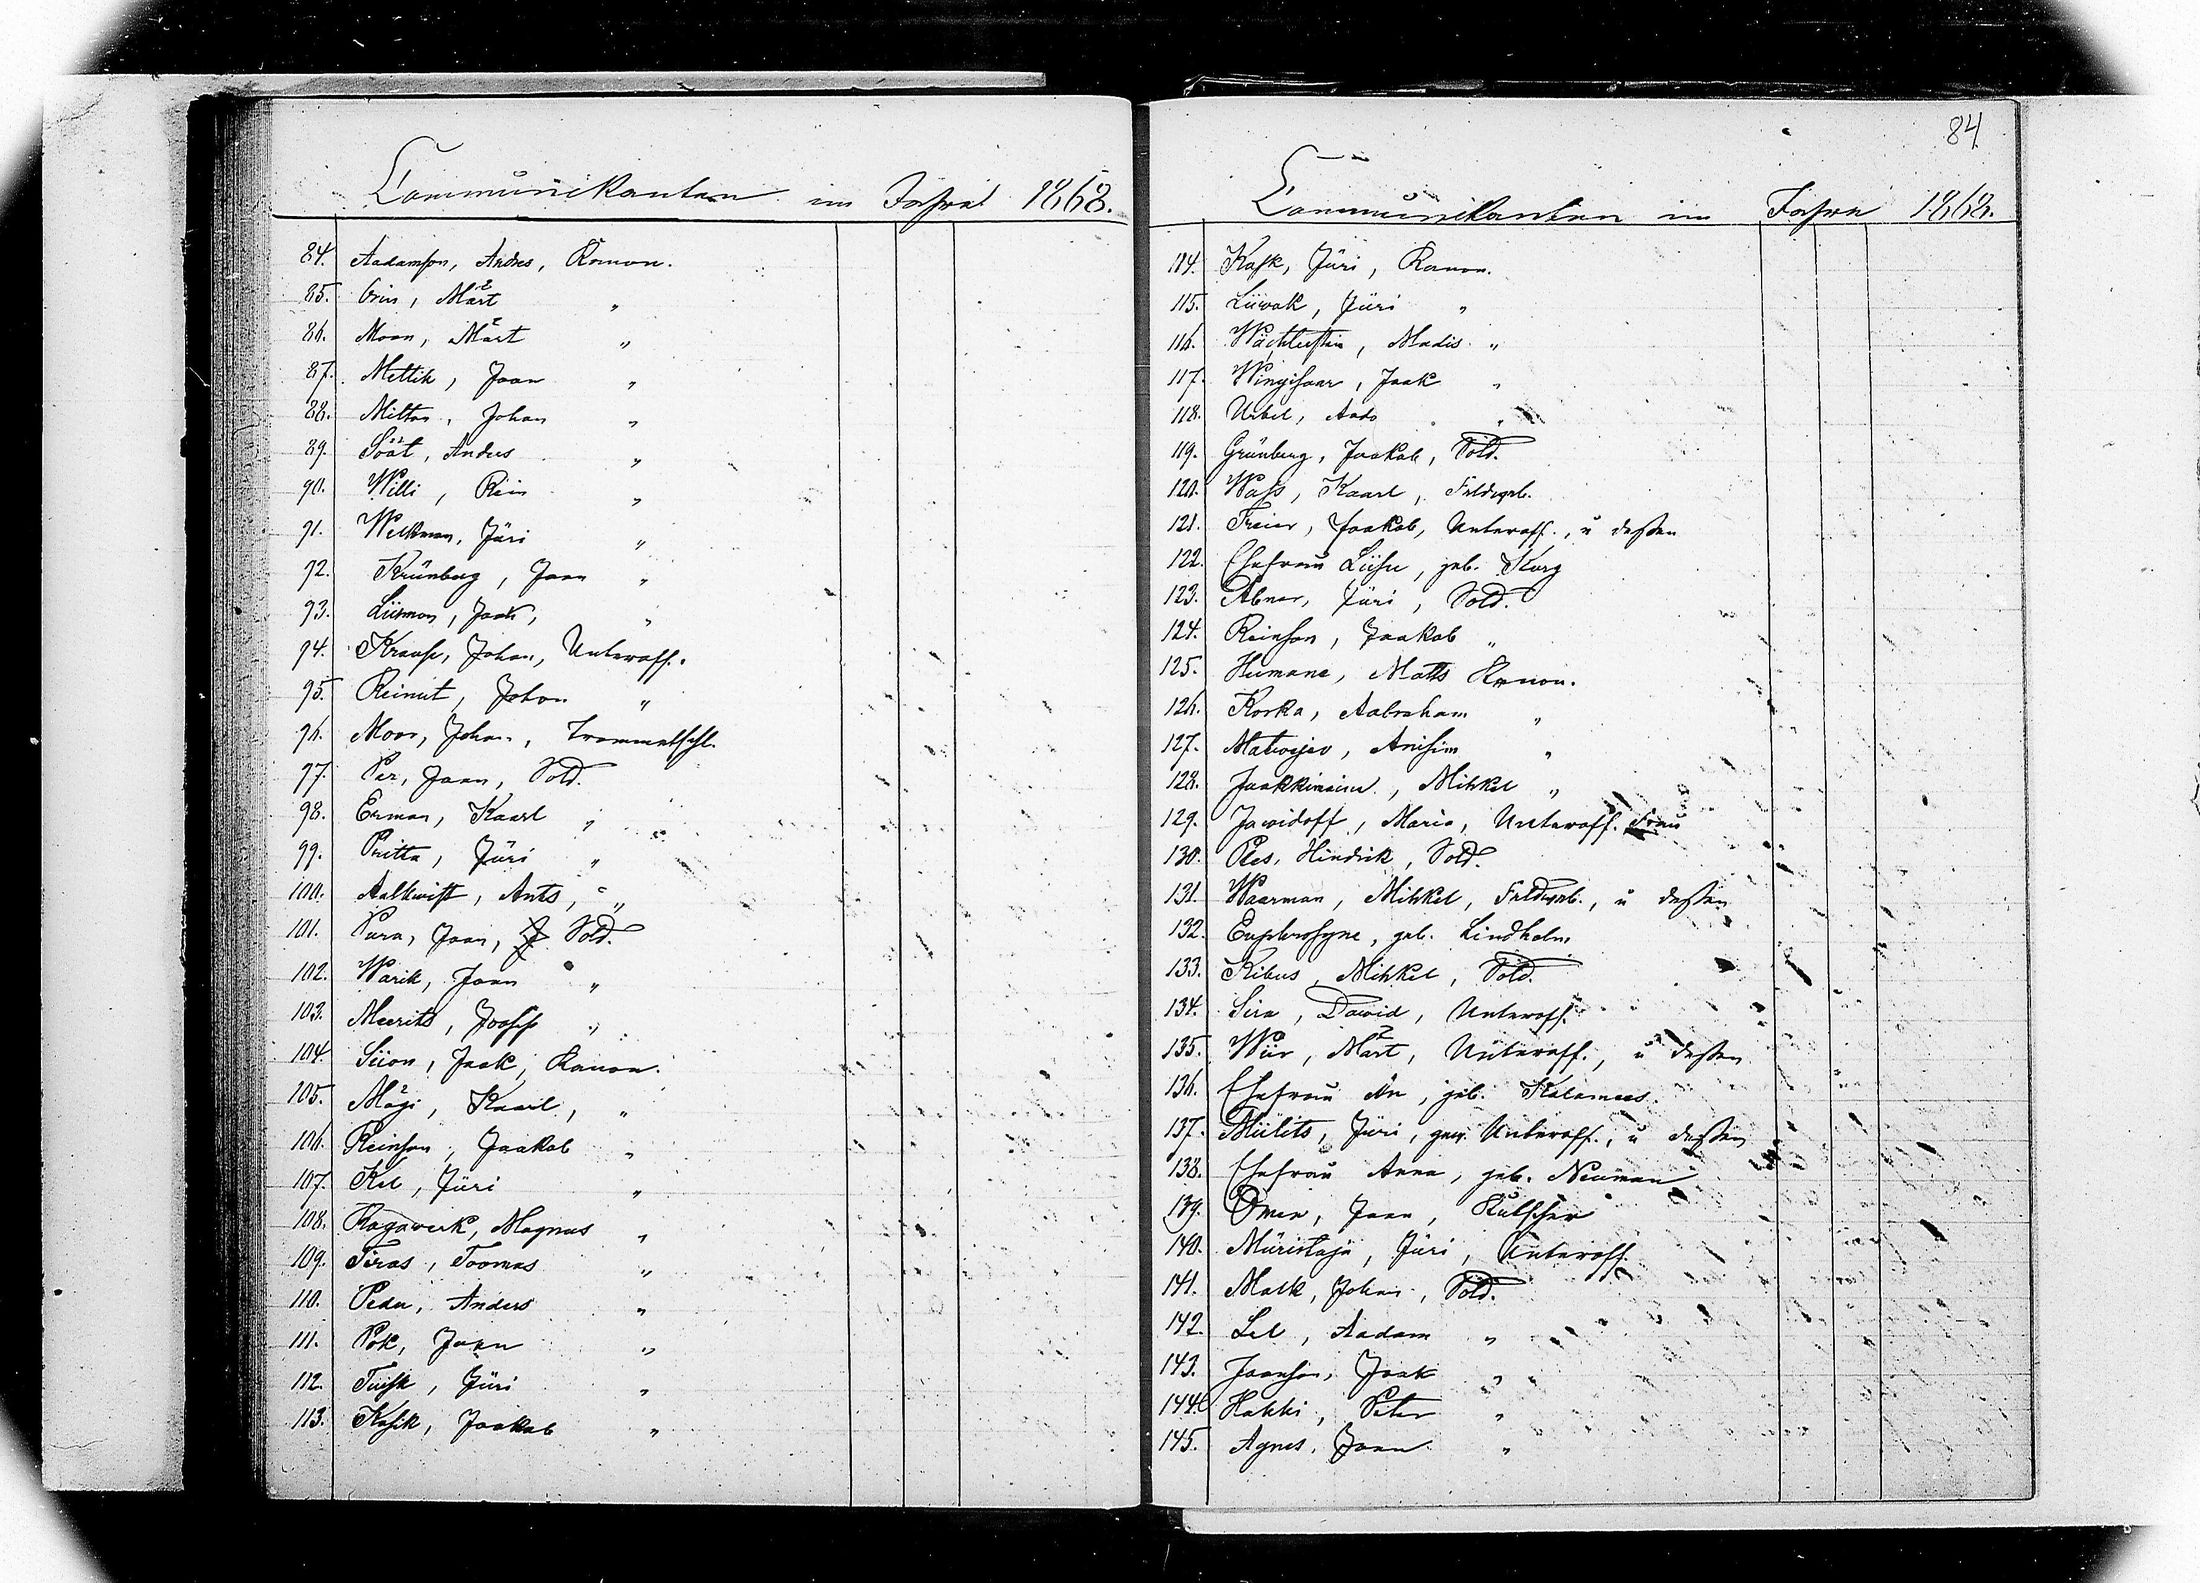 Communikanten im Jahre 1868.
84. Aadamson, Andres, Kanon.
85. Orin, Märt "
86. Moan, Märt "
87. Mettik, Jaan "
88. Milton, Johan "
89. Söät, Anders "
90. Willi, Rein "
91. Welkman, Jüri "
92. Krünberg, Jaan "
93. Liiman, Jaak, "
94. Krause, Johan, Unteroff.
95. Reimut, Johan "
96. Moor, Johan, Trommelschl.
97. Per, Jaan, Sold.
98. Erman, Kaarl "
99. Pritta, Jüri "
100. Aallwist, Ants, "
101. Para, Jaan, Sold.
102. Warik, Jaan "
103. Meerits, Joosep "
104. Siion, Jaak, Kanon.
105. Mägi, Kaarl, "
106. Reinson, Jaakob "
107. Kel, Jüri "
108. Ragawerk, Magnus "
109. Tiras, Toomas "
110. Peder, Anders "
111. Pók, Jaan "
112. Tuisk, Jüri "
113. Kasik, Jaakob "
84
Communikanten im Jahre 1868.
114. Kask, Jüri, Kanon.
115. Liiwak, Jüri "
116. Wächterstein, Madis "
117. Wingisaar, Jaak "
118. Urbel, Aado "
119. Grünberg, Jaakob, Sold.
120. Wass, Kaarl, Feldwgeb.
121. Freier, Jaakob, Unteroff., u dessen
122. Ehefrau Liisu, geb. Kurg
123. Abner, Jüri, Sold.
124. Reinson, Jaakob "
125. Humane, Matts Kanon.
126. Korka, Aabraham "
127. Matwejew, Anisim "
128. Jaakkimainen, Mihkel "
129. Jawidoff, Maria, Unteroff. Frau
130. Pees, Hindrik, Sold.
131. Waarman, Mihkel, Feldwgeb., u dessen
132. Euphrosyne, geb. Lindholm
133. Kibus, Mihkel, Sold.
134. Sira, Dawid, Unteroff.
135. Wiir, Märt, Unteroff., u dessen
136. Ehefrau An, geb. Kalamees.
137. Miilits, Jüri, gew. Unteroff., u dessen
138. Ehefrau Anna, geb. Neuman
139. Omer, Jaan, Kutscher
140. Müristaja, Jüri, Unteroff.
141. Mark, Johan, Sold.
142. Lel, Aadam "
143. Jaanson, Jaak "
144. Hakki, Peter "
145. Agnes, Jaan "